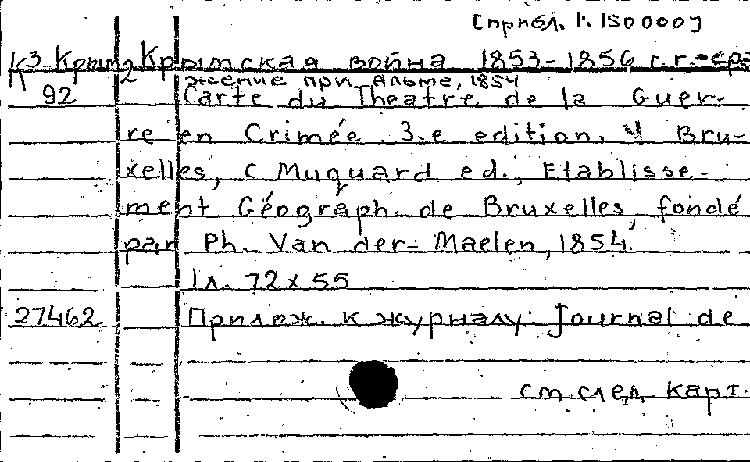 [прибл. 1:150000]
К 3 Крым 2 Крымская война 1853-1856 г.г.-сра-
жение при Альме, 1854
92 Carte du Theatre de la Guer-
re en Crimée. 3-e edition. Bru-
xelles, C Muquard ed., Etablisse-
ment Géograph. de Bruxelles, fondé
par Ph. Van der-Maelen, 1854.
1 л. 72 x 55
27462 Прилож. к журналу Journal de
см. след. карт.